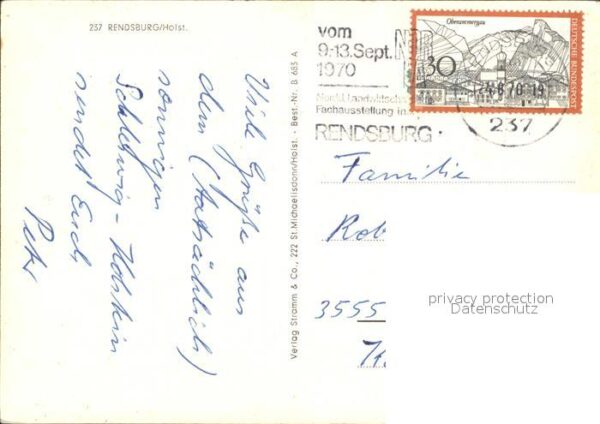 237 RENDSBURG/Holst.
Viele Grüße aus
dem (tatsächlich)
sonnigen
Schleswig-Holstein
sendet Euch
Peter
Verlag Stramm & Co., 222 St.Michaelisdonn/Holst. · Best.-Nr. B 685 A
vom
9.-13.Sept.
1970
NORLA
Fachausstellung in
RENDSBURG
Oberammergau
30
DEUTSCHE BUNDESPOST
.8.70-19
237
Familie
Rob
3555
privacy protection
Datenschutz